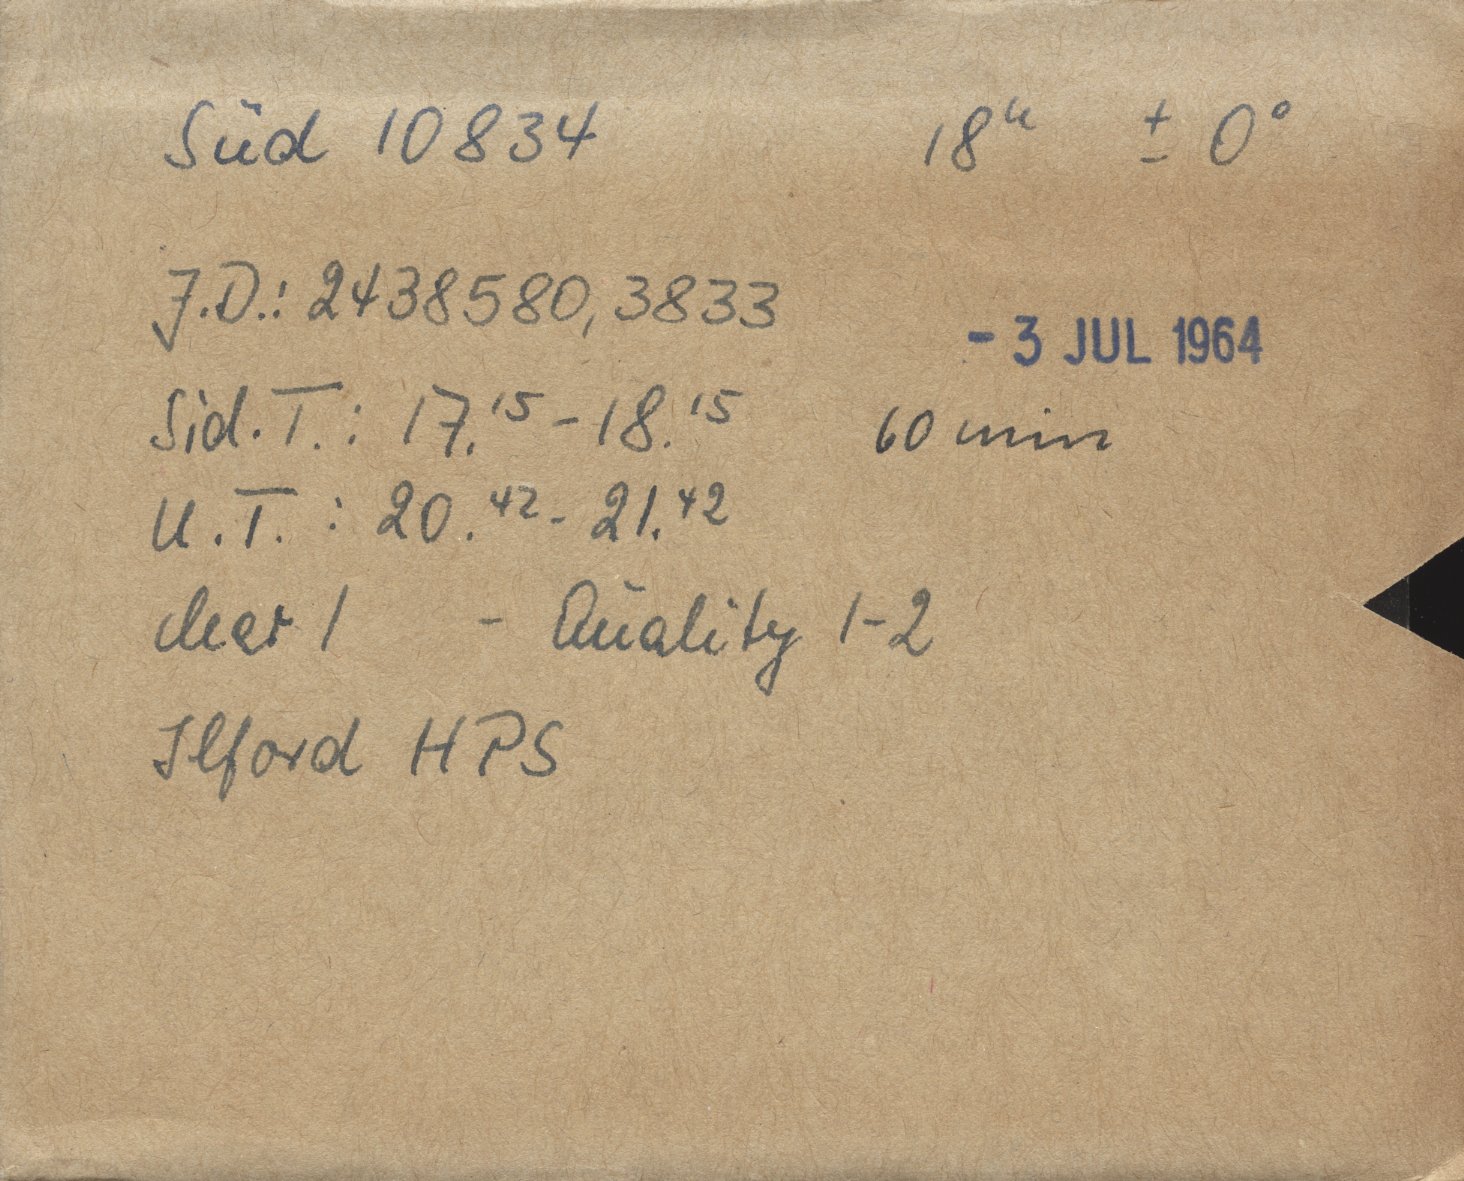 Süd 10834 18ʰ ± 0°
J.D.: 2438580,3833
- 3 JUL 1964
Sid. T.: 17.¹⁵ - 18.¹⁵ 60 min
U.T.: 20.⁴² - 21.⁴²
clear 1 - Quality 1-2
Ilford HPS